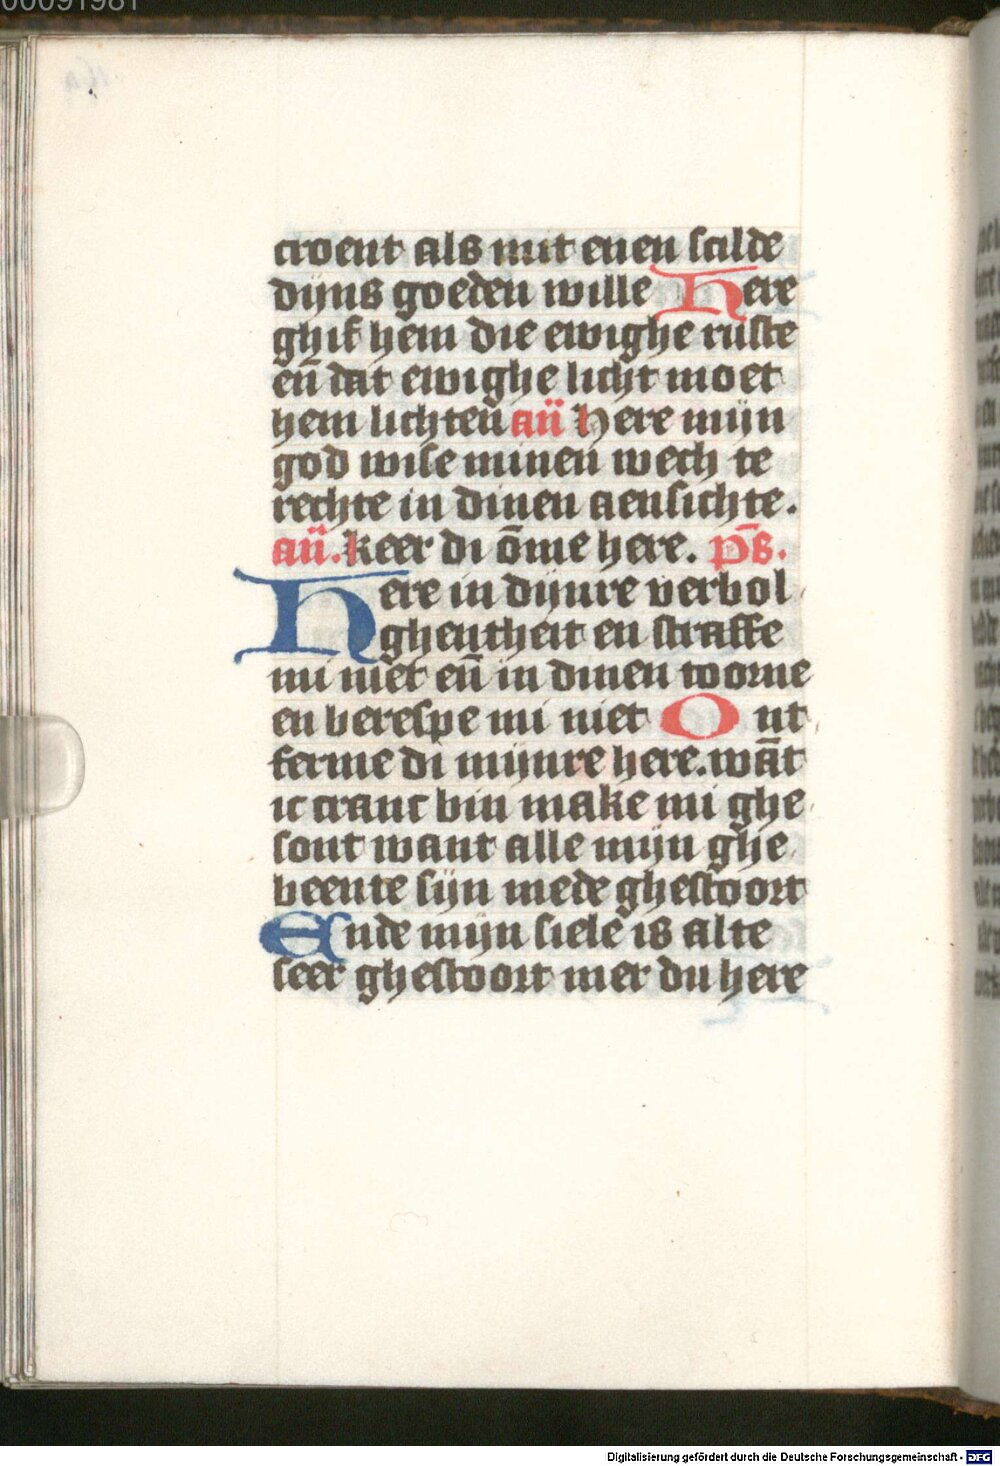 00091981
croent als mit enen scilde
dijns goeden wille Here
ghif hem die ewighe ruste
en̄ dat ewighe licht moet
hem lichten an̄ Here mijn
god wise minen wech te
rechte in dinen aensichte.
an̄. Keer di ōme here. ps̄.
Here in dijnre verbol
ghentheit en straffe
mi niet en̄ in dinen toorne
en berespe mi niet Ont
ferme di mijnre here. wāt
ic cranc bin make mi ghe
sont want alle mijn ghe
beente sijn mede ghestoort
Ende mijn siele is alte
seer ghestoort mer du here
Digitalisierung gefördert durch die Deutsche Forschungsgemeinschaft - DFG